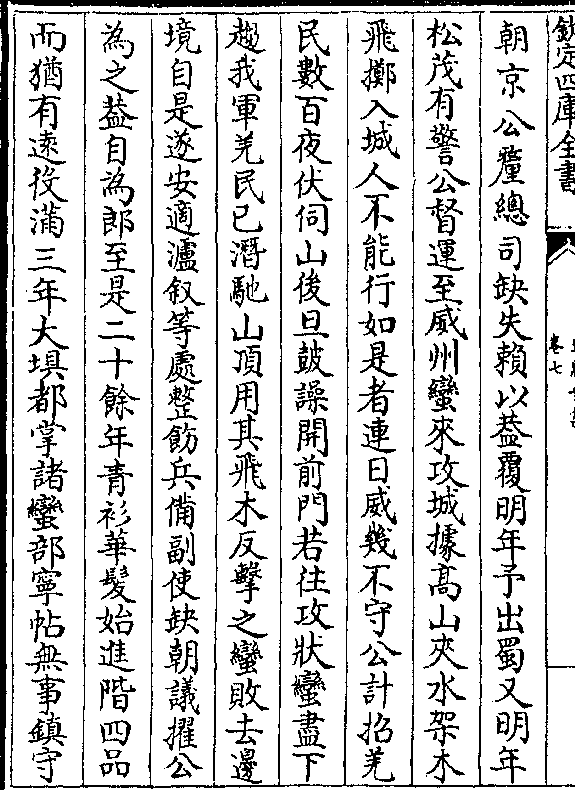 欽定四庫全書
卷七
朝京公釐總司缺失賴以葢覆明年予出蜀又明年
松茂有警公督運至威州蠻來攻城據高山夾水架木
飛擲入城人不能行如是者連日威幾不守公計招羌
民數百夜伏伺山後旦鼓譟開前門若往攻狀蠻盡下
趨我軍羌民已潛馳山頂用其飛木反擊之蠻敗去邊
境自是遂安適瀘叙等處整飭兵備副使缺朝議擢公
為之葢自為郎至是二十餘年青衫華髮始進階四品
而猶有逺役滿三年大埧都掌諸蠻部寧帖無事鎮守